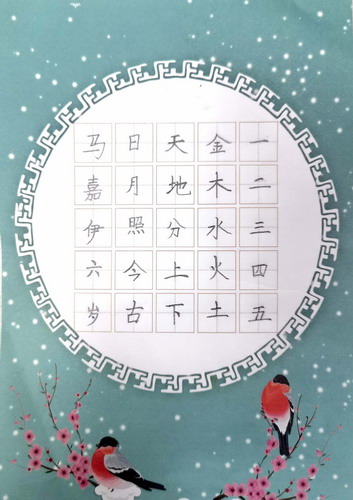 一二三四五
金木水火土
天地分上下
日月照今古
马嘉伊六岁